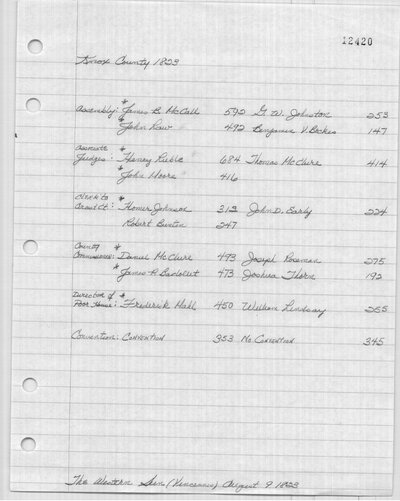 12420
Knox County 1823
Assembly: * James B. McCall 592 G. W. Johnston 253
* John Law 492 Benjamin V. Beckes 147
Associate
Judges: * Henry Ruble 684 Thomas McClure 414
* John Moore 416
Clerk to
Circuit Ct: * Homer Johnson 313 John D. Early 224
Robert Buntin 247
County
Commissioner: * Daniel McClure 493 Joseph Roseman 275
* James P. Badollet 473 Joshua Thorn 192
Director of
Poor House: * Frederick Hall 450 William Lindsay 265
Convention: Convention 353 No Convention 345
The Western Sun (Vincennes) August 9 1823